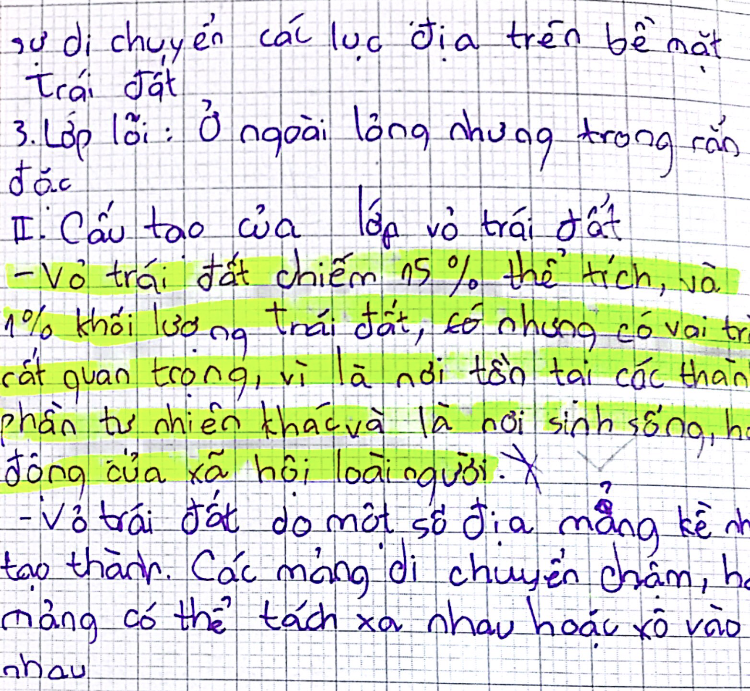 sự di chuyển các lục địa trên bề mặt
Trái đất
3. Lớp lõi: Ở ngoài lỏng nhưng trong rắn
đặc
II. Cấu tạo của lớp vỏ trái đất
- Vỏ trái đất chiếm 15% thể tích, và
1% khối lượng Trái đất, có nhưng có vai tr
rất quan trọng, vì là nơi tồn tại các thàn
phần tự nhiên khác và là nơi sinh sống, h
động của xã hội loài người.
- Vỏ trái đất do một số địa mảng kề nh
tạo thành. Các mảng di chuyển chậm, h
mảng có thể tách xa nhau hoặc xô vào
nhau